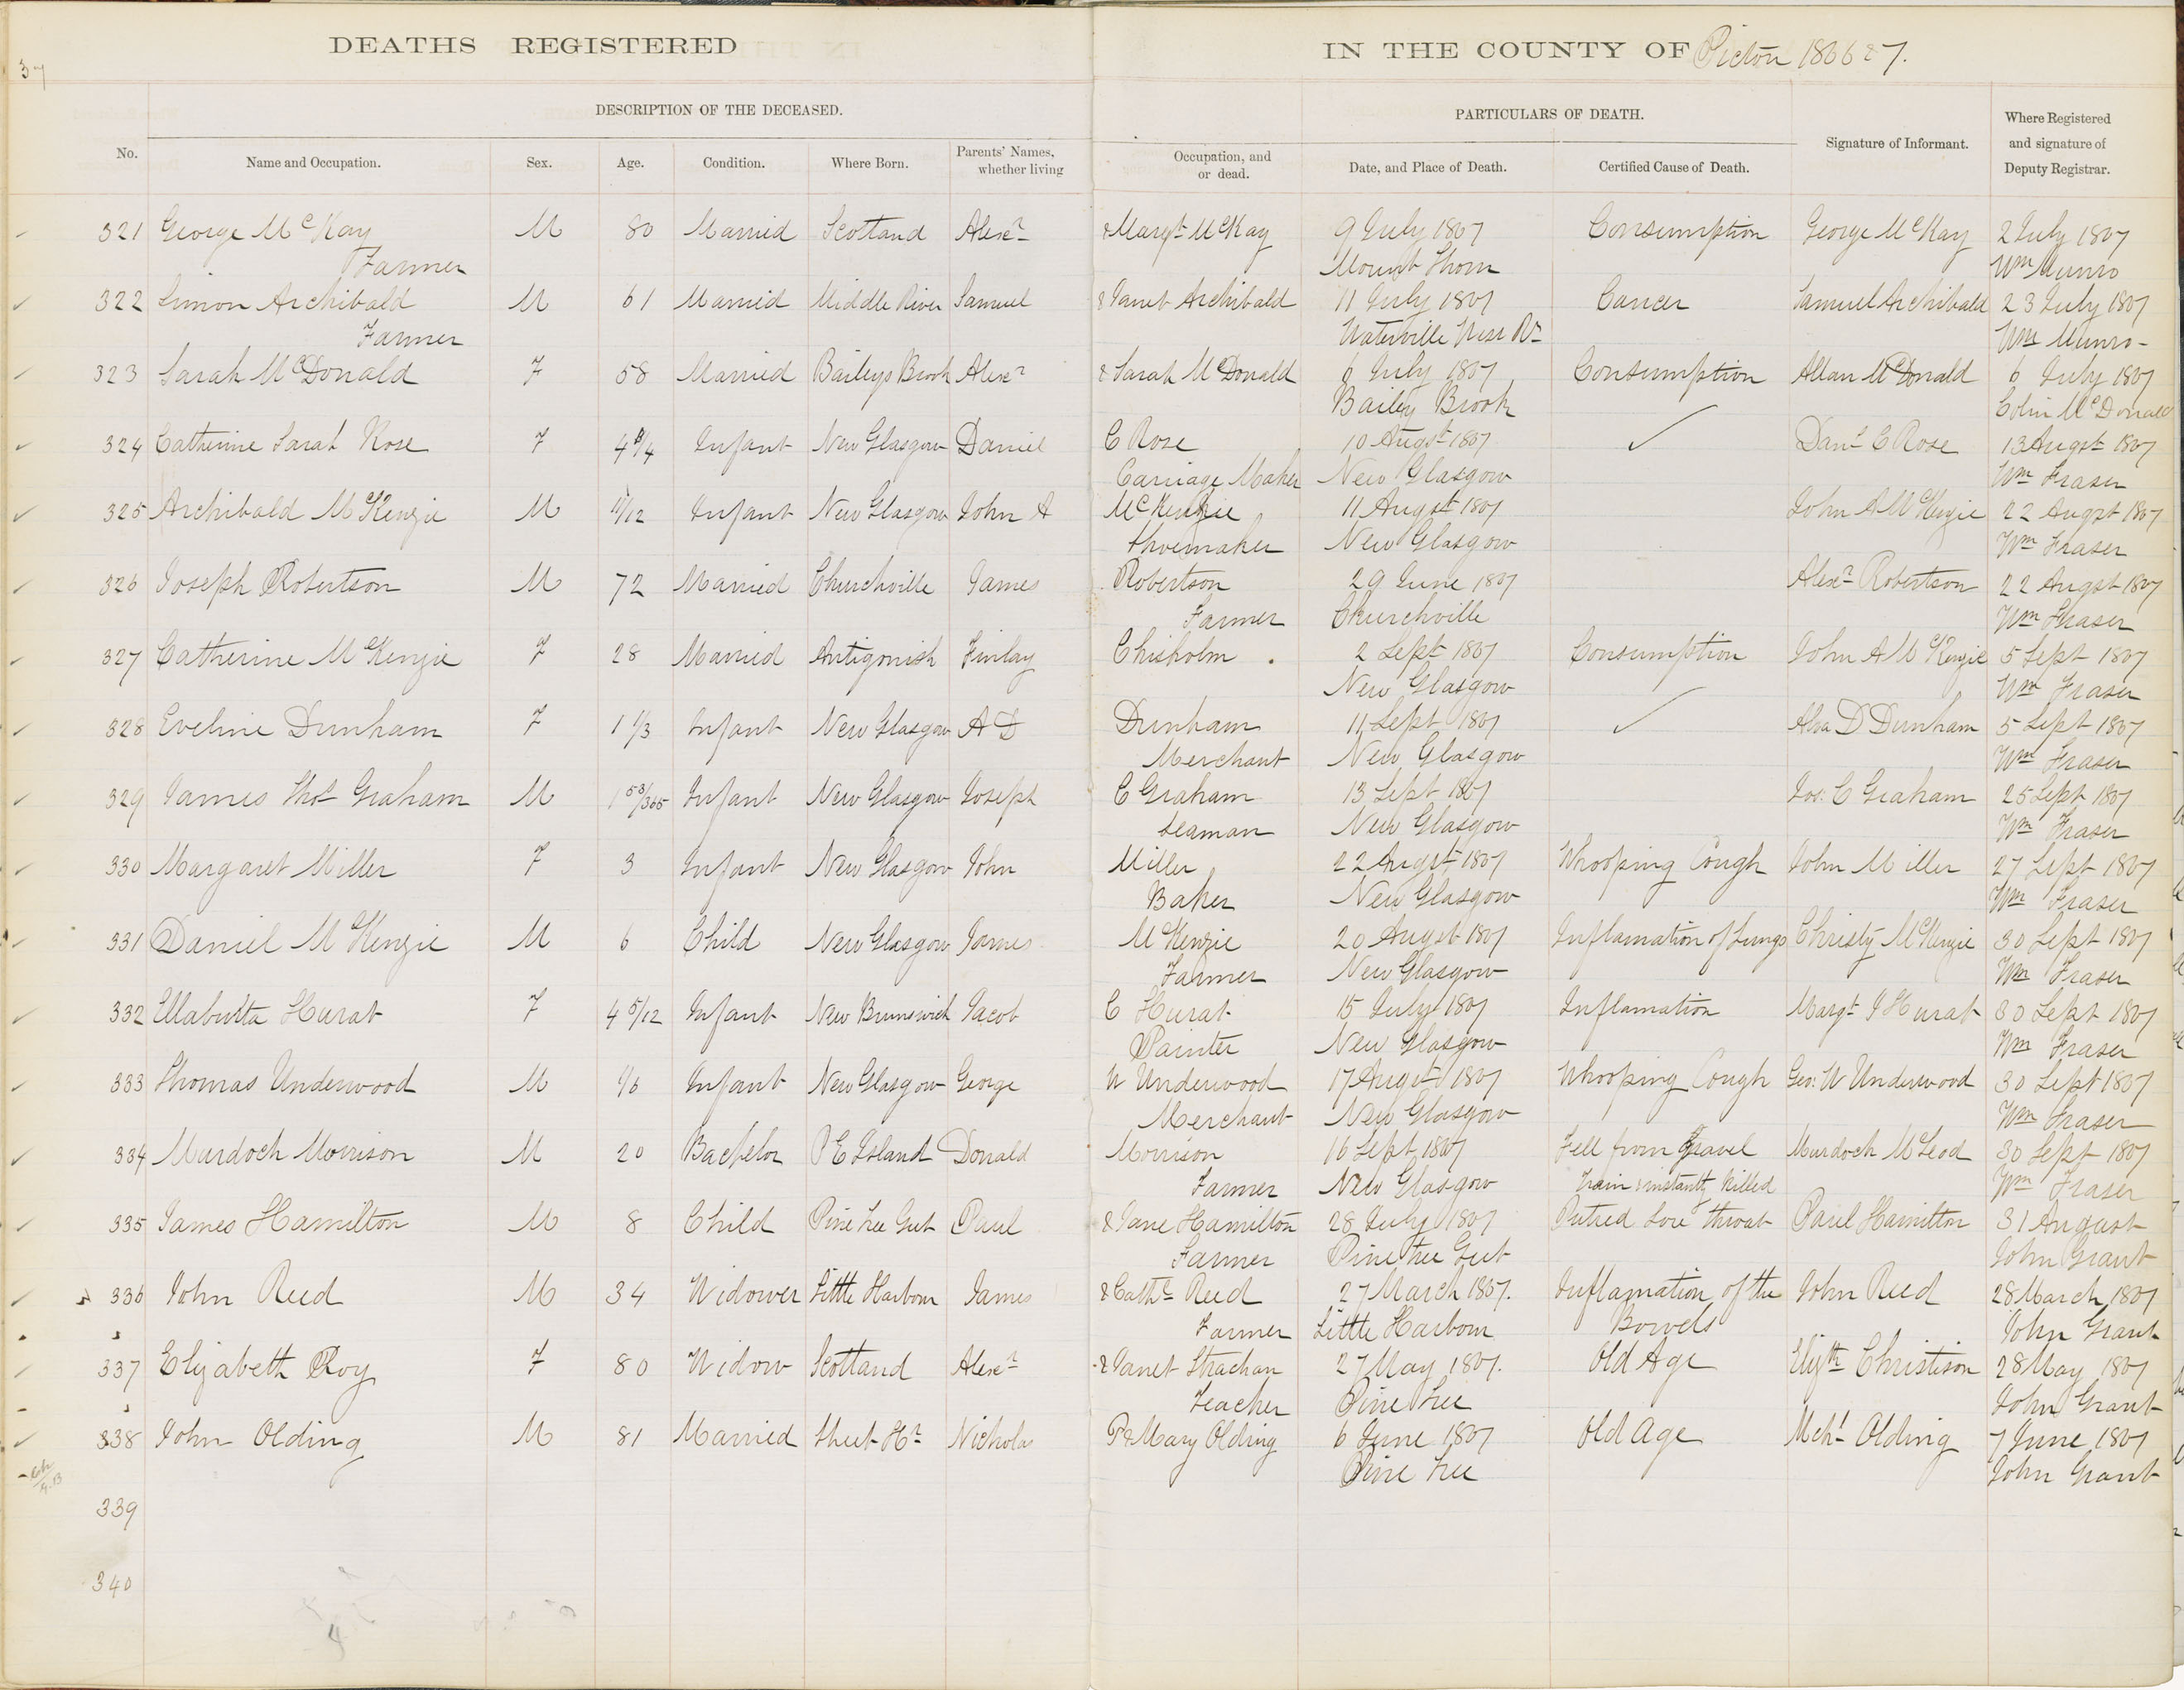 DEATHS REGISTERED IN THE COUNTY OF Picton 1866 & 7.
37
DESCRIPTION OF THE DECEASED. PARTICULARS OF DEATH.
No. Name and Occupation. Sex. Age. Condition. Where Born. Parents' Names, whether living Occupation, and or dead. Date, and Place of Death. Certified Cause of Death. Signature of Informant. Where Registered and signature of Deputy Registrar.
321 George McKay M 80 Married Scotland Alexr & Margt McKay 9 July 1867 Consumption George McKay 2 July 1867
Farmer Mount Thom Wm Munro
322 Simon Archibald M 61 Married Middle River Samuel & Janet Archibald 11 July 1867 Cancer Samuel Archibald 23 July 1867
Farmer Waterville West Rr Wm Munro
323 Sarah McDonald F 58 Married Baileys Brook Alexr & Sarah McDonald 6 July 1867 Consumption Allan McDonald 6 July 1867
Bailey Brook Colin McDonald
324 Catherine Sarah Rose F 4 3/4 Infant New Glasgow Daniel C Rose 10 Augst 1867 ✓ Danl C Rose 13 Augst 1867
Carriage Maker New Glasgow Wm Fraser
325 Archibald McKenzie M 11/12 Infant New Glasgow John A McKenzie 11 Augst 1867 John A McKenzie 22 Augst 1867
Shoemaker New Glasgow Wm Fraser
326 Joseph Robertson M 72 Married Churchville James Robertson 29 June 1867 Alexr Robertson 22 Augst 1867
Farmer Churchville Wm Fraser
327 Catherine McKenzie F 28 Married Antigonish Finlay Chisholm 2 Sept 1867 Consumption John A McKenzie 5 Sept 1867
New Glasgow Wm Fraser
328 Eveline Dunham F 1 1/3 Infant New Glasgow A D Dunham 11 Sept 1867 ✓ Alva D Dunham 5 Sept 1867
Merchant New Glasgow Wm Fraser
329 James Thos Graham M 1 58/365 Infant New Glasgow Joseph C Graham 13 Sept 1867 Jos: C Graham 25 Sept 1867
Seaman New Glasgow Wm Fraser
330 Margaret Miller F 3 Infant New Glasgow John Miller 22 Augst 1867 Whooping Cough John Miller 27 Sept 1867
Baker New Glasgow Wm Fraser
331 Daniel McKenzie M 6 Child New Glasgow James McKenzie 20 Augst 1867 Inflamation of Lungs Christy McKenzie 30 Sept 1867
Farmer New Glasgow Wm Fraser
332 Hurat F 4 5/12 Infant New Brunswick Jacob C Hurat 15 July 1867 Inflamation Margt J Hurat 30 Sept 1867
Painter New Glasgow Wm Fraser
333 Thomas Underwood M 1/6 Infant New Glasgow George W Underwood 17 Augst 1867 Whooping Cough Geo: W Underwood 30 Sept 1867
Merchant New Glasgow Wm Fraser
334 Murdoch Morrison M 20 Bachelor P E Island Donald Morrison 16 Sept 1867 Fell from Gravel Murdoch McLeod 30 Sept 1867
Farmer New Glasgow Train & instantly killed Wm Fraser
335 James Hamilton M 8 Child Pine Tree Gut Paul & Jane Hamilton 28 July 1867 Putred Sore throat Paul Hamilton 31 August
Farmer Pine tree Gut John Grant
336 John Reed M 34 Widower Little Harbour James & Cathe Reed 27 March 1867. Inflamation of the John Reed 28 March 1867
Farmer Little Harbour Bowels John Grant
337 Elizabeth Roy F 80 Widow Scotland Alexr & Janet Strachan 27 May 1867. Old Age Elizth Christison 28 May 1867
Teacher Pine Tree John Grant
338 John Olding M 81 Married Sheet Hr Nicholas P & Mary Olding 6 June 1867 Old Age Mchl Olding 7 June 1867
Pine Tree John Grant
339
340
4